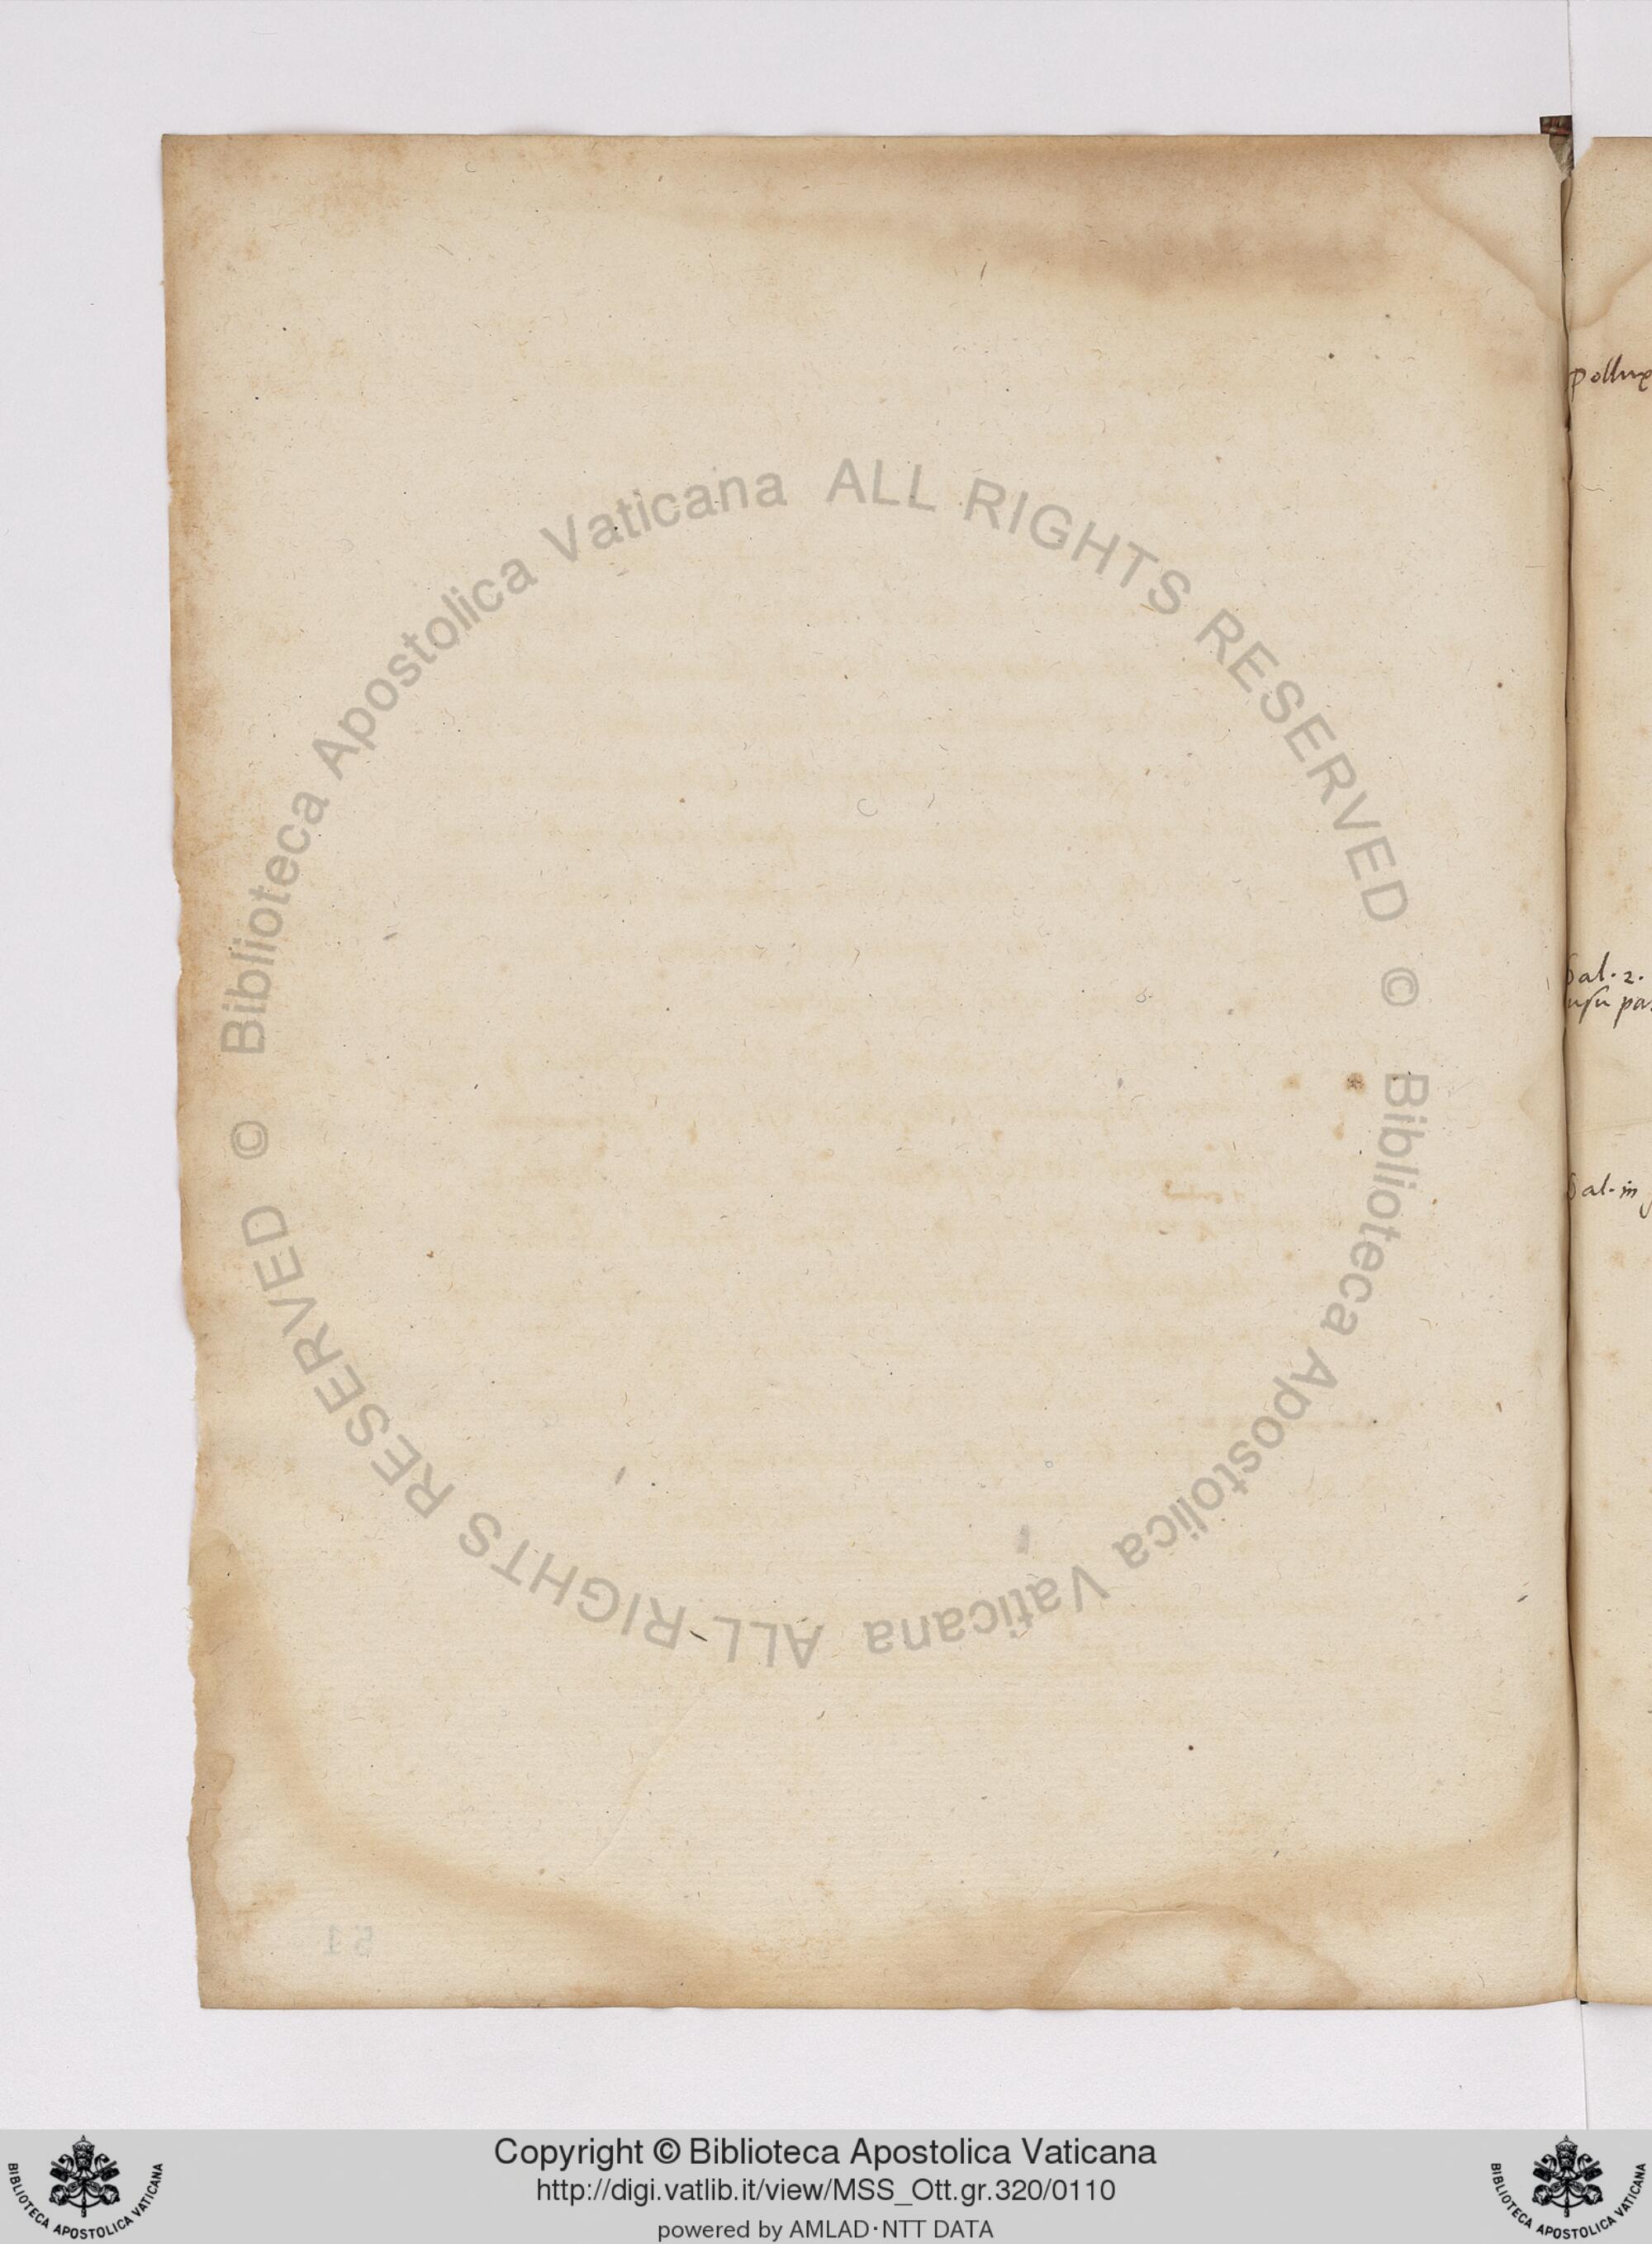 Biblioteca Apostolica Vaticana ALL RIGHTS RESERVED ©
Biblioteca Apostolica Vaticana ALL RIGHTS RESERVED ©
Pollux
Gal. 2.
usu pa
Gal. in
51
Copyright © Biblioteca Apostolica Vaticana
http://digi.vatlib.it/view/MSS_Ott.gr.320/0110
powered by AMLAD·NTT DATA
BIBLIOTECA APOSTOLICA VATICANA
BIBLIOTECA APOSTOLICA VATICANA